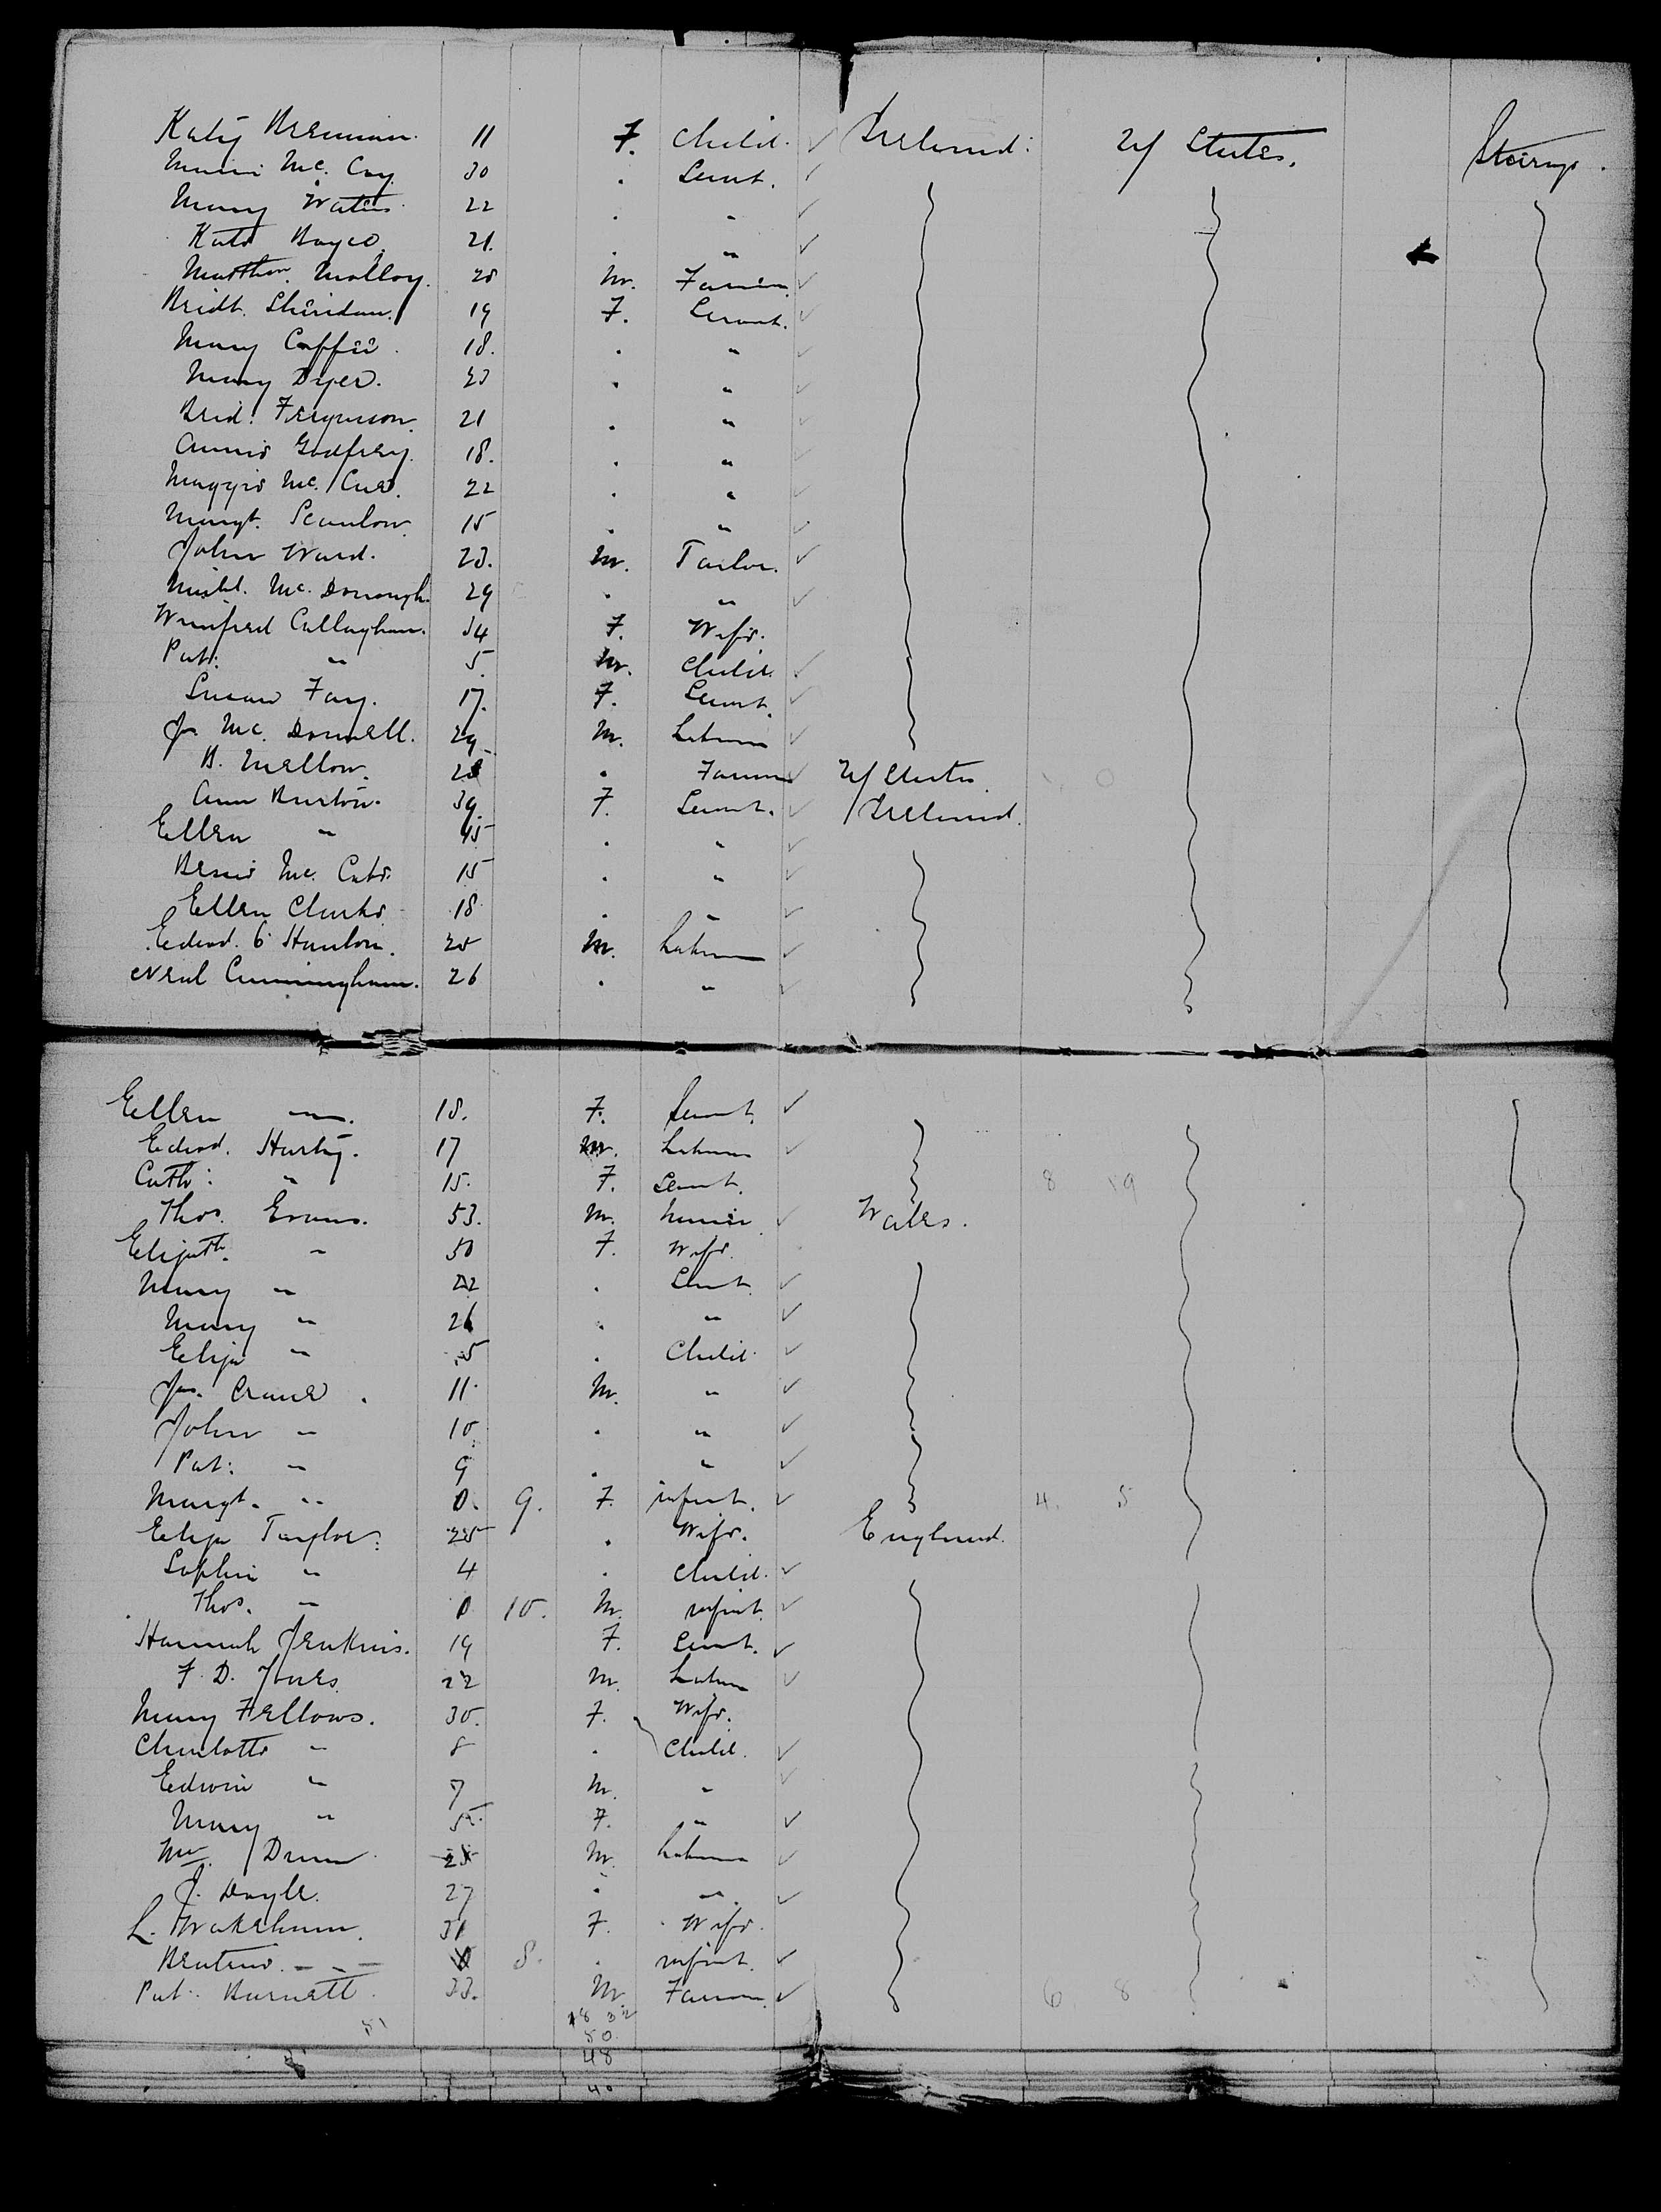 Katy Brennan. 11 F. Child. ✓ Ireland. U/States. Steerage.
Mc. Coy. 30 . Servt. ✓
Mary Waters. 22 . " ✓
Kate Boyce. 21. . " ✓
Matthew Molloy. 28 M. Farmer ✓
Bridt. Sheridan. 19 F. Servnt. ✓
Mary Coffee. 18. . " ✓
Mary Dyer. 23 . " ✓
Brid. Ferguson. 21 . " ✓
Annie Godfrey. 18. . " ✓
Maggie Mc. Cue. 22 . " ✓
Margt. Scanlon. 15 . " ✓
John Ward. 23. M. Tailor. ✓
Michl. Mc. Donough. 29 . " ✓
Winifred Callaghan. 34 F. Wife.
Pat: " 5. M. Child. ✓
Susan Fay. 17. F. Servnt. ✓
Js. Mc. Donnell. 29 M. Labourer ✓
B. Mellon. . Farmer ✓ U/States
Ann Burton. 39. F. Servnt. ✓ Ireland.
Ellen " 45 . " ✓
Mc. Cabe. 15 . " ✓
Ellen Clarke 18 . " ✓
Edwd. O'Hanlon. 20 M. Labourer ✓
Neal Cunningham. 26 . " ✓
Ellen " 18. F. Servnt. ✓
Edwd. Hartry. 17 M. Labourer ✓
Cath: " 15. F. Servnt. 8 19
Thos. Evans. 53. M. Miner ✓ Wales.
Elizath. " 50 F. Wife.
Mary " 22 . Servnt ✓
Mary " 26 . " ✓
Eliza " 5 . Child ✓
Js. Crane. 11. M. " ✓
John " 10 . " ✓
Pat: " 9 . " ✓
Margt. " 0. 9. F. infant. ✓ 4. 5
Eliza Taylor. 25 . Wife. England.
Sophia " 4 . Child. ✓
Thos. " 0 10. M. infant. ✓
Hannah Jenkins. 19 F. Servnt. ✓
F. D. Jones. 22 M. Labourer ✓
Mary Fellows. 30. F. Wife.
Charlotte " 8 . Child. ✓
Edwin " 7 M. " ✓
Mary " 5. F. " ✓
Wm. Dunn 25 M. Labourer ✓
J. Doyle. 27 . " ✓
L. Wakeham. 31 F. Wife.
" 0 8. . infant. ✓
Pat. Burnett. 33. M Farmer. ✓ 6 8
51 18 32
50
48
40